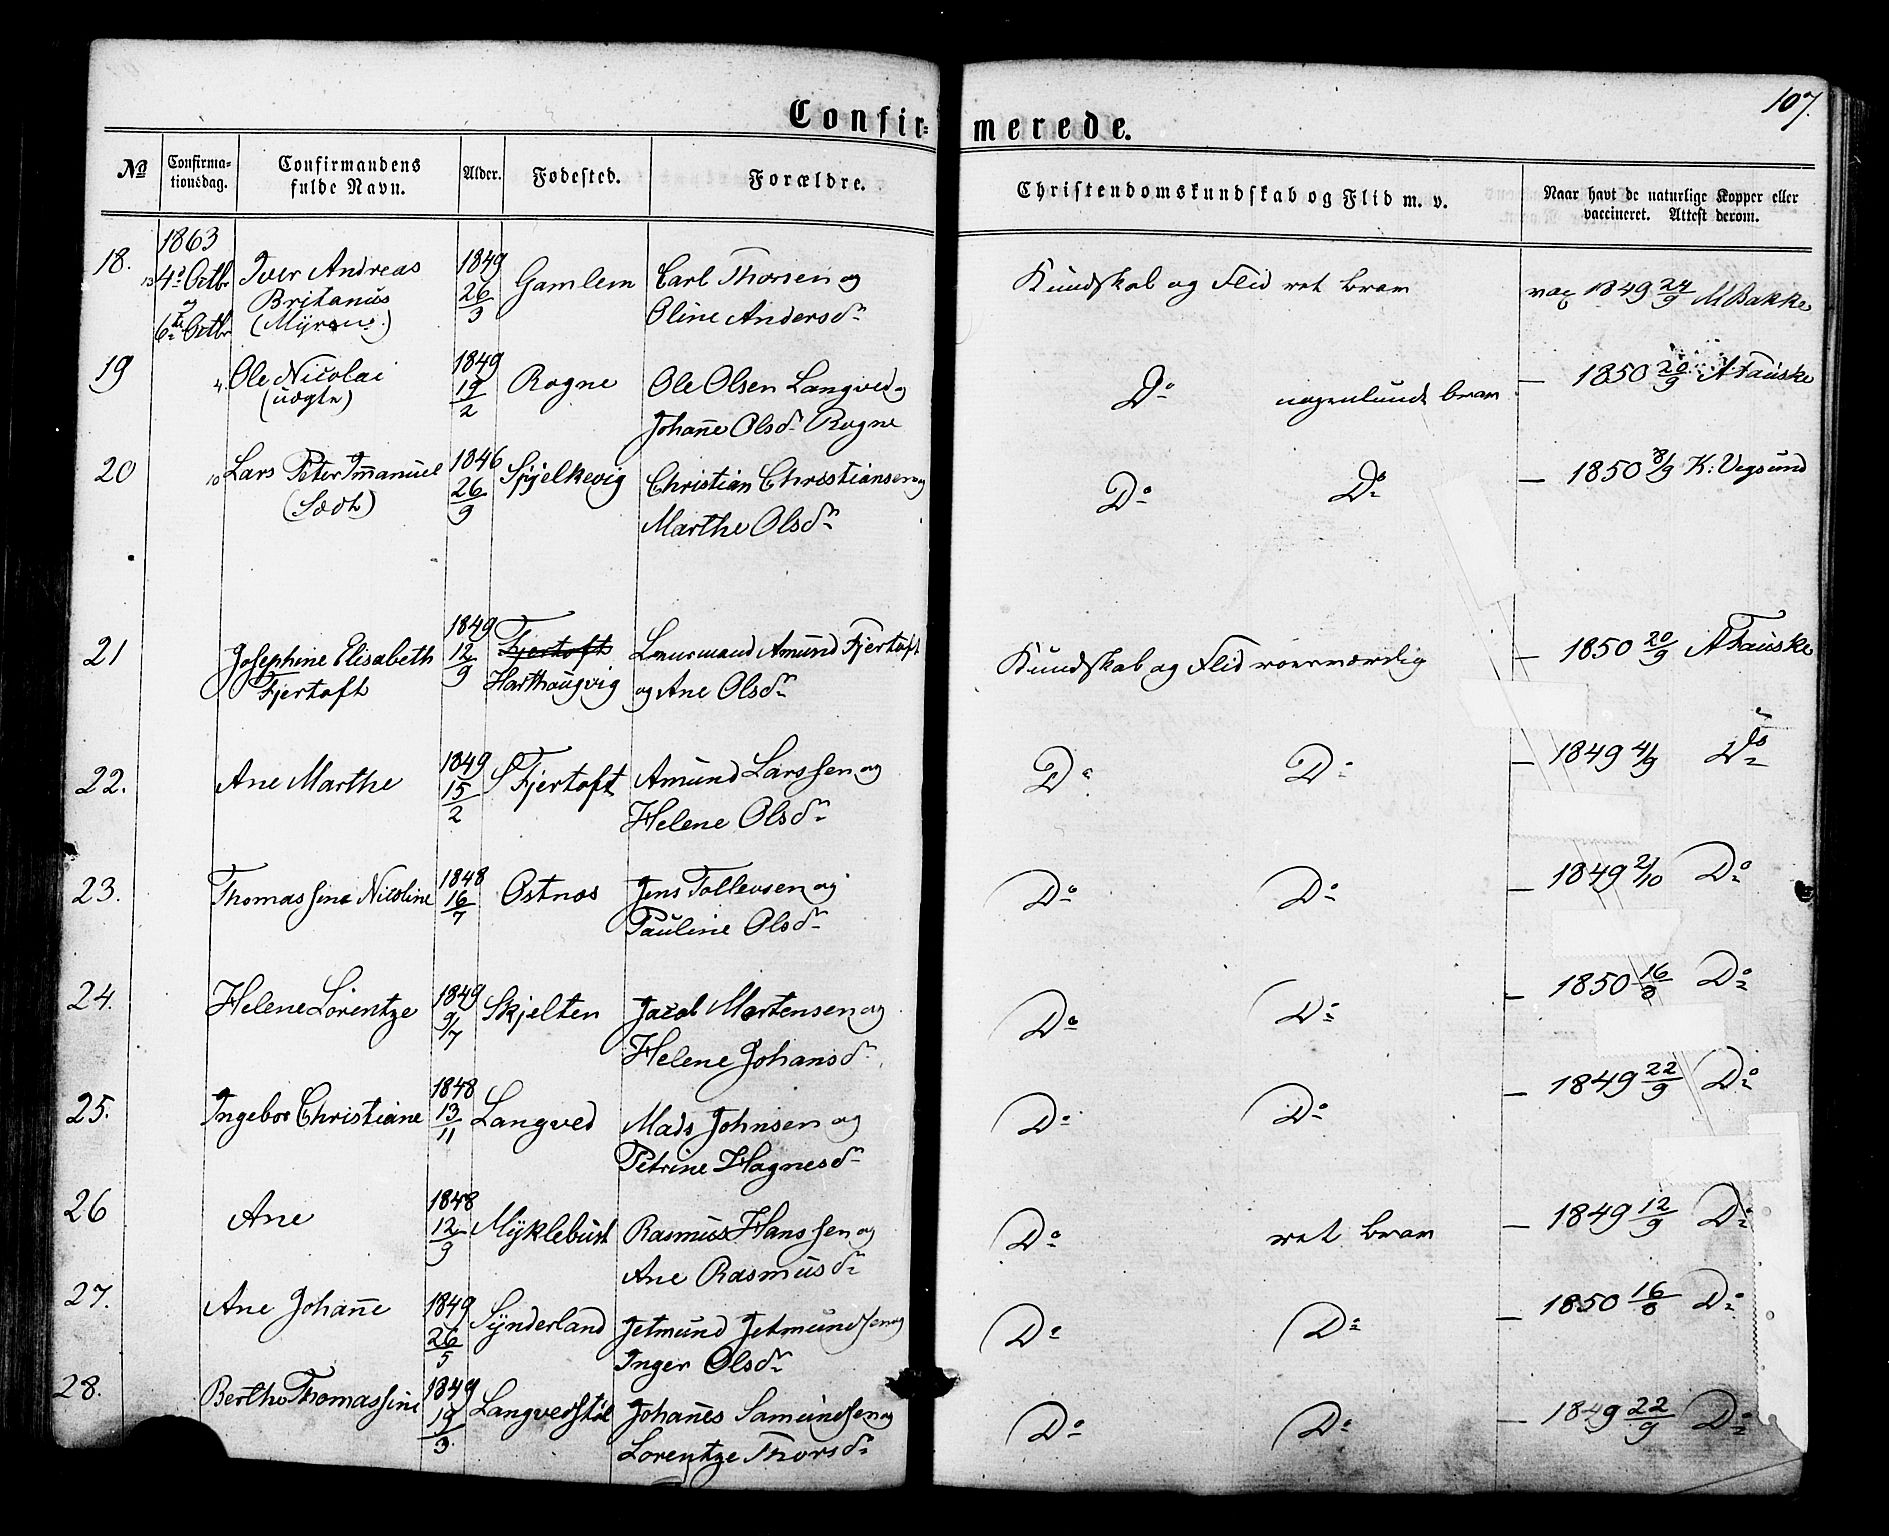 107.
Confirmerede.
No Confirmationsdag. Confirmandens fulde Navn. Alder. Fødested. Forældre. Christendomskundskab og Flid m. v. Naar havt de naturlige Kopper eller vaccineret. Attest derom.
18. 1863 4de Octbr og 6te Octbr Iver Andreas Britanus 1849 26/3 Gamlem Carl Thorsen og Oline Andersdr Kundskab og Flid ret brav vac 1849 24/9 M Bakke
19 Ole Nicolai (uægte) 1849 19/2 Rogne Ole Olsen Langved og Johanne Olsdr Rogne Do nogenlunde brav — 1850 20/9 A Fauske
20 Lars Peter Immanuel 1846 26/9 Spjelkevig Christian Christiansen og Marthe Olsdr Do Do — 1850 8/9 K: Vegsund
21 Josephine Elisabeth Fjertoft 1849 12/9 Fjertoft Harthaugvig Lensmand Amund Fjertoft og Ane Olsdr Kundskab og Flid roesværdig — 1850 20/9 A Fauske
22. Ane Marthe 1849 15/2 Fjertoft Amund Larssen og Helene Olsdr Do Do — 1849 4/9 Ds
23. Thomassine Nicoline 1848 16/7 Østnes Jens Tollevsen og Pauline Olsdr Do Do — 1849 2/10 Do
24. Helene Lorentze 1849 9/7 Skjelten Jacob Martensen og Helene Johansdr Do Do — 1850 16/8 Do
25. Ingebor Christiane 1848 13/11 Langved Mads Johnsen og Petrine Hagnesdr Do Do — 1849 22/9 Do
26 Ane 1848 12/9 Myklebust Rasmus Hanssen og Ane Rasmusdr Do ret brav — 1849 12/9 Do
27. Ane Johanne 1849 26/5 Synderland Jetmund Jetmundsen og Inger Olsdr Do Do — 1850 16/8 Do
28. Berthe Thomassine 1849 19/3 Langvedstøl Johannes Samundsen og Lorentze Thorsdr Do Do — 1849 22/9 Do